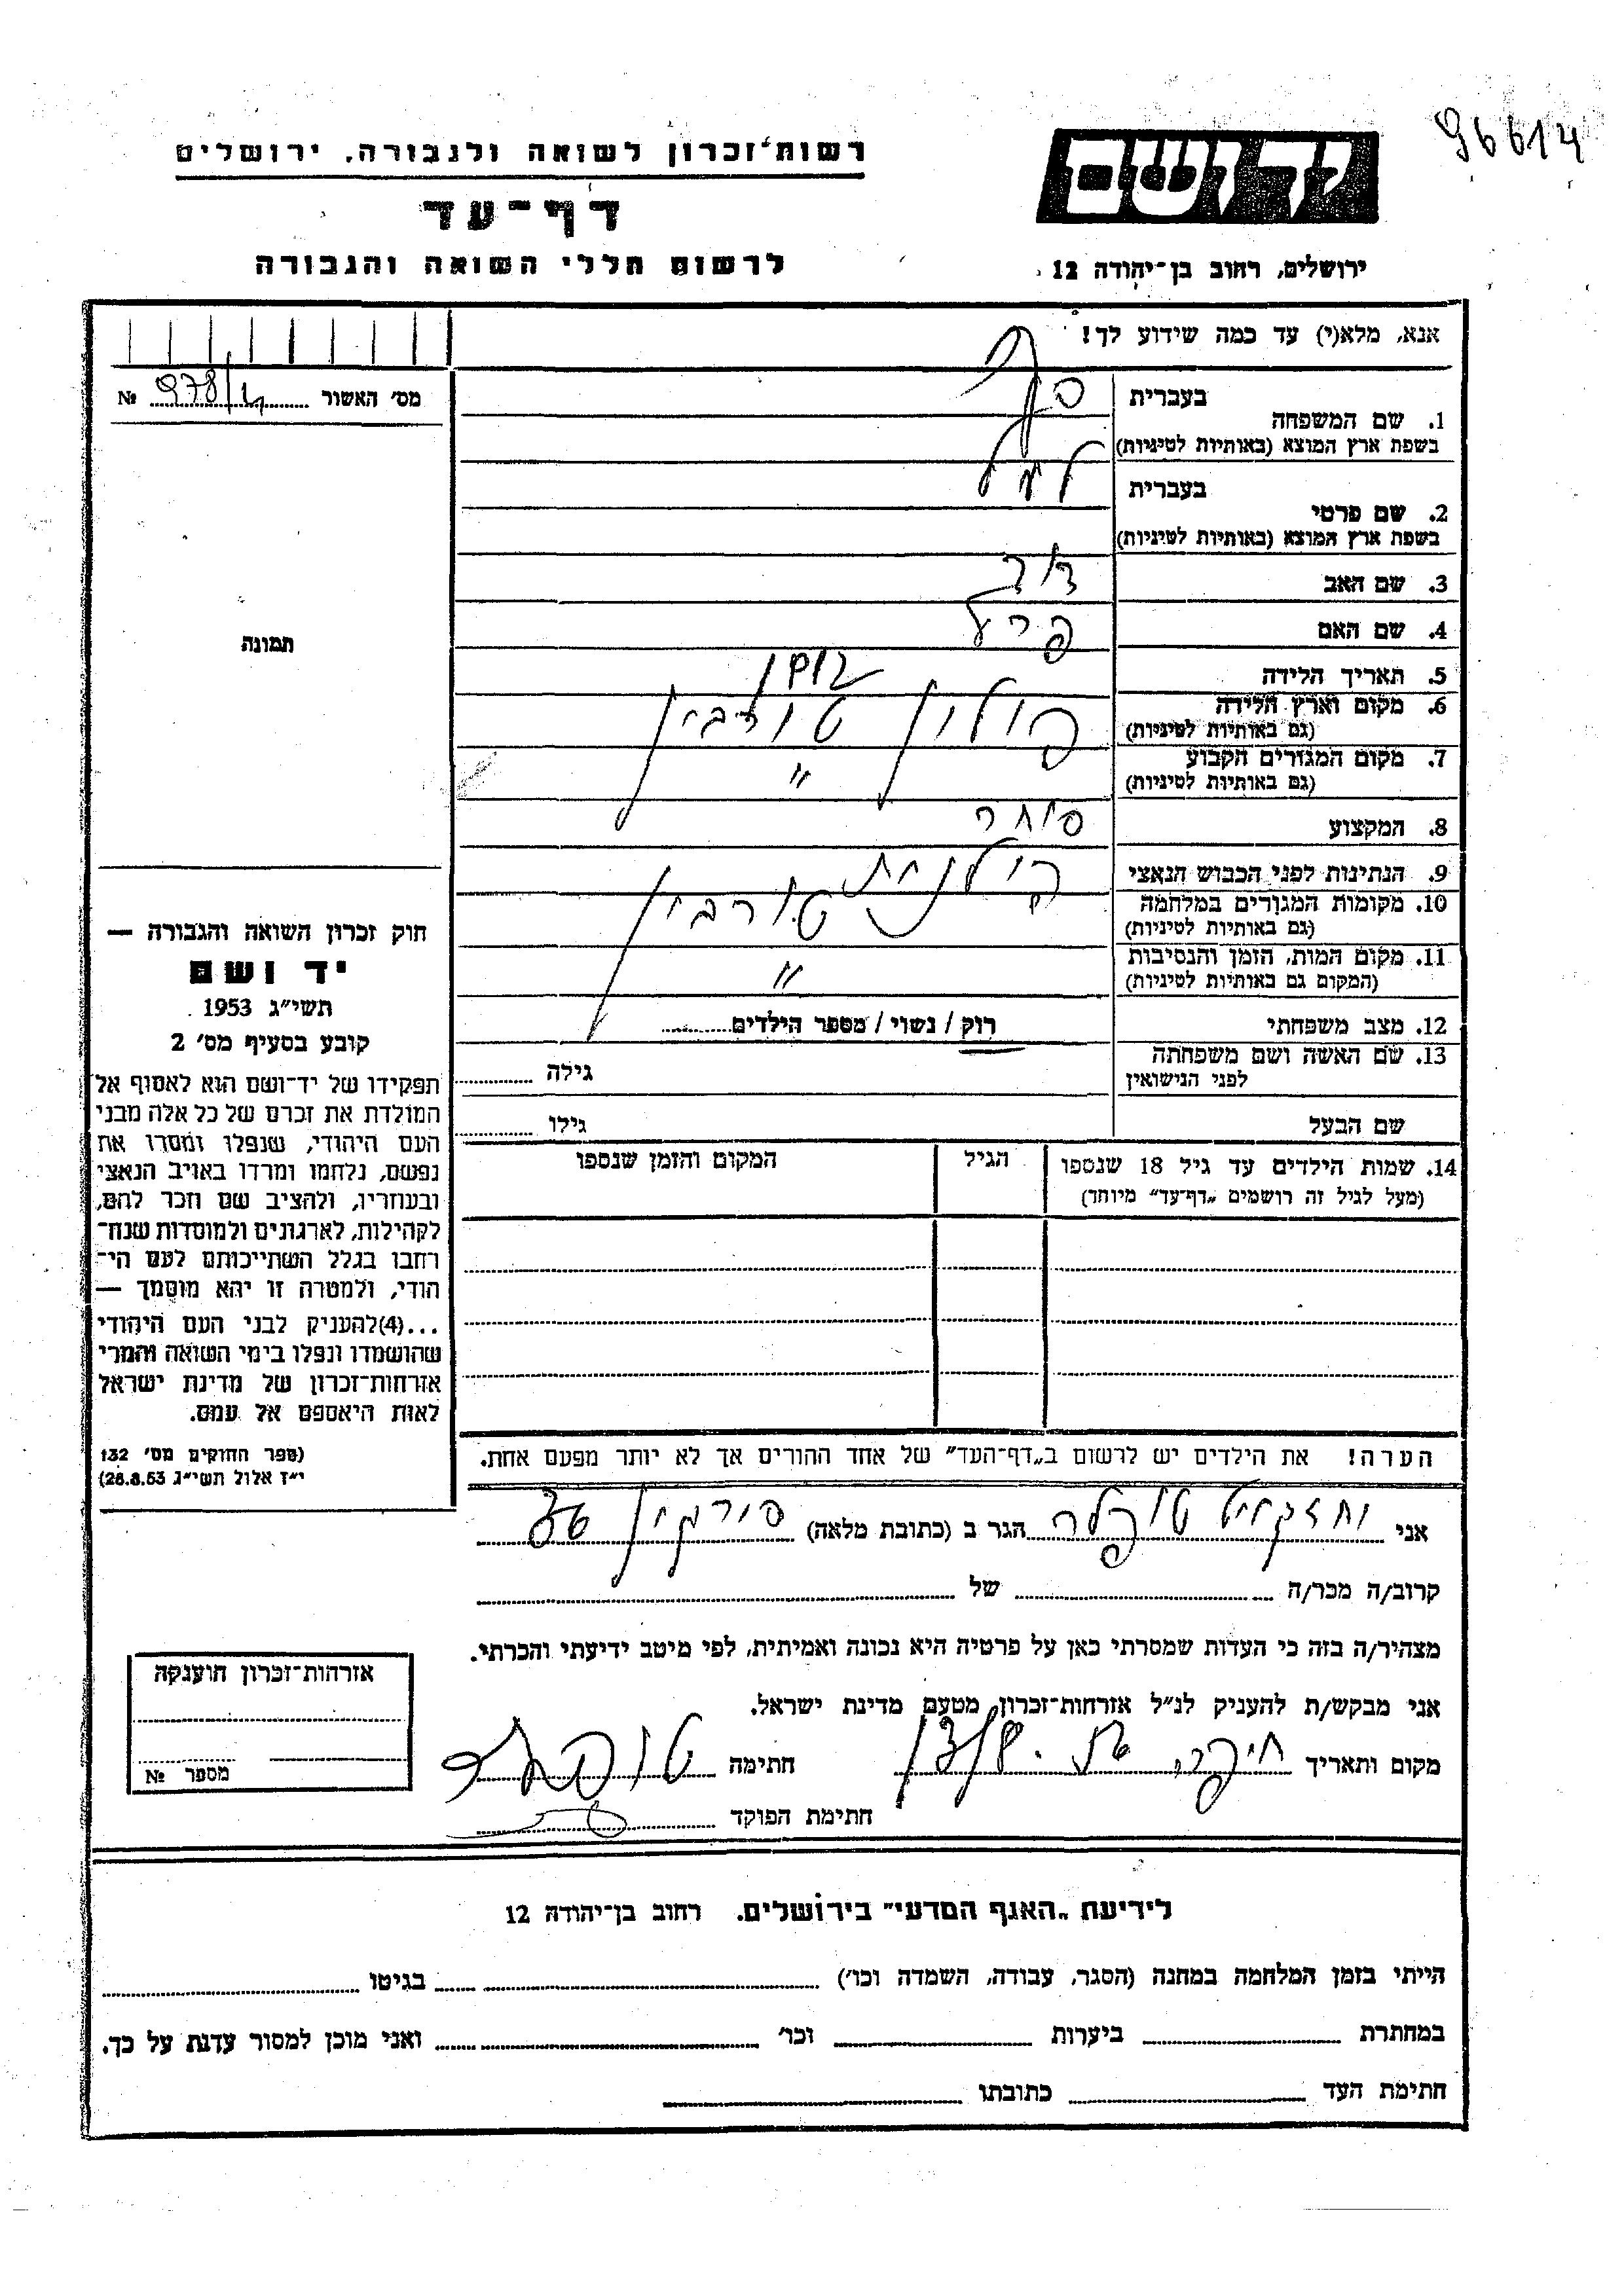 96614
רשות־זכרון לשואה ולגבורה, ירושלים
יד ושם
דף־עד
לרשום חללי השואה והגבורה
ירושלים, רחוב בן־יהודה 12
אנא, מלא(י) עד כמה שידוע לך!
מס׳ האשור 978/4 №
בעברית
1. שם המשפחה
בשפת ארץ המוצא (באותיות לטיניות)
בעברית
2. שם פרטי
בשפת ארץ המוצא (באותיות לטיניות)
3. שם האב דוד
4. שם האם
5. תאריך הלידה
6. מקום וארץ הלידה פולין טורבין
(גם באותיות לטיניות)
7. מקום המגורים הקבוע "
(גם באותיות לטיניות)
8. המקצוע סוחר
9. הנתינות לפני הכבוש הנאצי פולנית
10. מקומות המגורים במלחמה טורבין
(גם באותיות לטיניות)
11. מקום המות, הזמן והנסיבות "
(המקום גם באותיות לטיניות)
12. מצב משפחתי רוק / נשוי / מספר הילדים
13. שם האשה ושם משפחתה גילה
לפני הנישואין
שם הבעל גילו
14. שמות הילדים עד גיל 18 שנספו הגיל המקום והזמן שנספו
(מעל לגיל זה רושמים „דף־עד” מיוחד)
הערה! את הילדים יש לרשום ב„דף־העד” של אחד ההורים אך לא יותר מפעם אחת.
תמונה
חוק זכרון השואה והגבורה —
יד ושם
תשי״ג 1953
קובע בסעיף מס׳ 2
תפקידו של יד־ושם הוא לאסוף אל
המולדת את זכרם של כל אלה מבני
העם היהודי, שנפלו ומסרו את
נפשם, נלחמו ומרדו באויב הנאצי
ובעוזריו, ולהציב שם וזכר להם,
לקהילות, לארגונים ולמוסדות שנח־
רחבו בגלל השתייכותם לעם הי־
הודי, ולמטרה זו יהא מוסמך —
...(4)להעניק לבני העם היהודי
שהושמדו ונפלו בימי השואה והמרי
אזרחות־זכרון של מדינת ישראל
לאות היאספם אל עמם.
(ספר החוקים מס׳ 132
י״ז אלול תשי״ג 28.8.53)
אני הגר ב (כתובת מלאה)
קרוב/ה מכר/ה של
מצהיר/ה בזה כי העדות שמסרתי כאן על פרטיה היא נכונה ואמיתית, לפי מיטב ידיעתי והכרתי.
אני מבקש/ת להעניק לנ״ל אזרחות־זכרון מטעם מדינת ישראל.
מקום ותאריך חיפה, חתימה
חתימת הפוקד
אזרחות־זכרון הוענקה
מספר №
לידיעת „האגף המדעי” בירושלים. רחוב בן־יהודה 12
הייתי בזמן המלחמה במחנה (הסגר, עבודה, השמדה וכו׳) בגיטו
במחתרת ביערות וכו׳ ואני מוכן למסור עדות על כך.
חתימת העד כתובתו